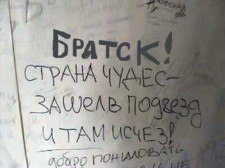 БРАТСК!
СТРАНА ЧУДЕС-
ЗАШЕЛ В ПОДЪЕЗД
И ТАМ ИСЧЕЗ!
ДОБРО ПОЖАЛОВАТЬ